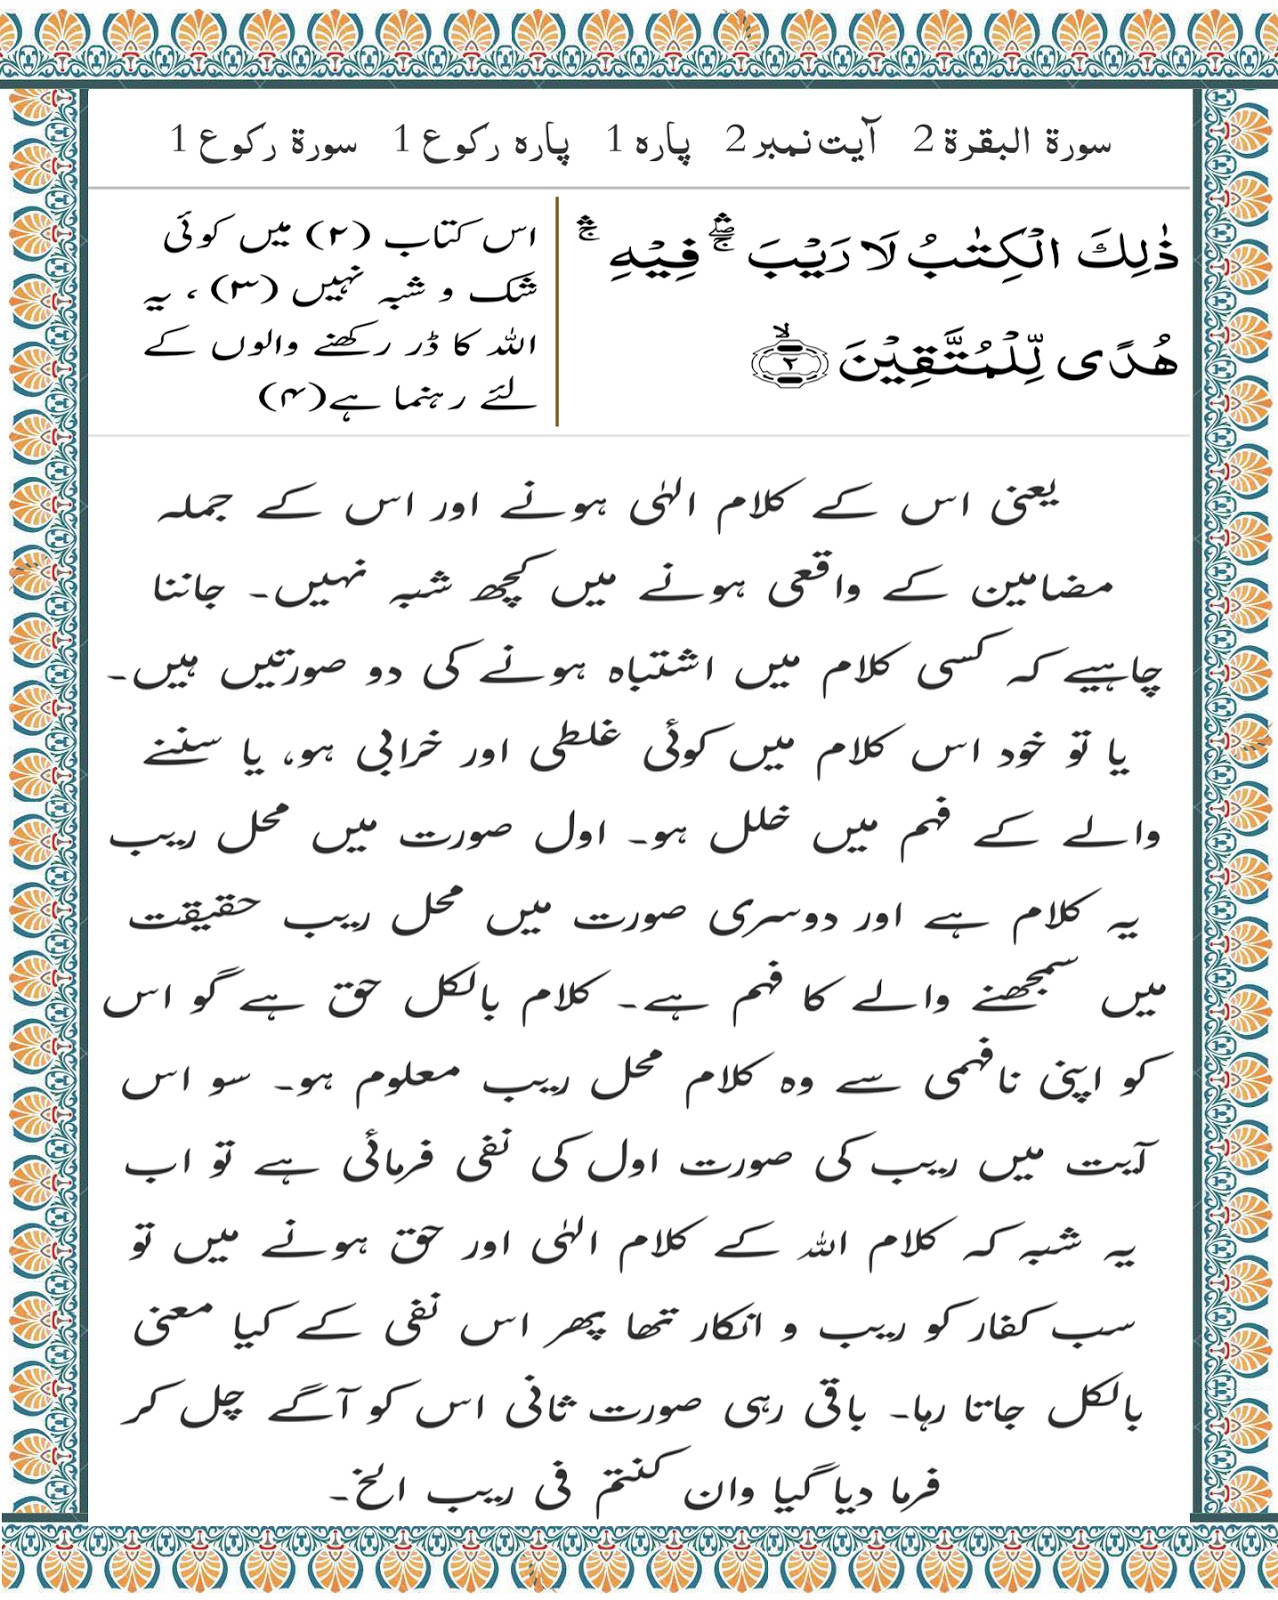 سورة البقرة 2 آیت نمبر 2 پارہ 1 پارہ رکوع 1 سورة رکوع 1
ذٰلِكَ الْكِتٰبُ لَا رَيْبَ ۛۖۚ فِيْهِ ۛۚ
هُدًى لِّلْمُتَّقِيْنَ ۙ‏﴿۲﴾
اس کتاب (۲) میں کوئی
شک و شبہ نہیں (۳) ، یہ
اللہ کا ڈر رکھنے والوں کے
لئے رہنما ہے(۴)
یعنی اس کے کلام الہٰی ہونے اور اس کے جملہ
مضامین کے واقعی ہونے میں کچھ شبہ نہیں۔ جاننا
چاہیے کہ کسی کلام میں اشتباہ ہونے کی دو صورتیں ہیں۔
یا تو خود اس کلام میں کوئی غلطی اور خرابی ہو، یا سننے
والے کے فہم میں خلل ہو۔ اول صورت میں محل ریب
یہ کلام ہے اور دوسری صورت میں محل ریب حقیقت
میں سمجھنے والے کا فہم ہے۔ کلام بالکل حق ہے گو اس
کو اپنی نافہمی سے وہ کلام محل ریب معلوم ہو۔ سو اس
آیت میں ریب کی صورت اول کی نفی فرمائی ہے تو اب
یہ شبہ کہ کلام اللہ کے کلام الہٰی اور حق ہونے میں تو
سب کفار کو ریب و انکار تھا پھر اس نفی کے کیا معنی
بالکل جاتا رہا۔ باقی رہی صورت ثانی اس کو آگے چل کر
فرما دیا گیا وان کنتم فی ریب الخ۔